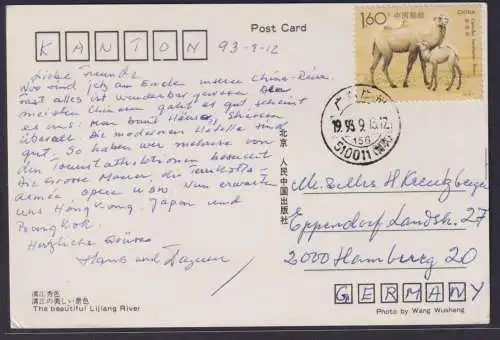 Post Card
KANTON 93-9-12
Liebe Freunde
Nun sind wir am Ende unserer China-Reise.
Fast alles ist wunderbar gewesen. Den
meisten Chinesen geht es gut, scheint
es uns. Man baut Häuser, Strassen
überall. Die modernen Hotells sind
gut. So haben wir mehrere von
den Touristatraktionen besucht
Die grosse Mauer, die Terrakotta-
Armee, opera usw. Nun erwarten
uns Hong Kong, Japan und
Bangkok.
Herzliche Grüsse
Hans und
漓江秀色
漓江の美しい景色
The beautiful Lijiang River
北京 人民中国出版社
160 中国邮政
CHINA
19 93. 9. 13. 12
156
510011
H Kreuzberger
Eppendorf Landstr. 27
2000 Hamburg 20
GERMANY
Photo by Wang Wushang